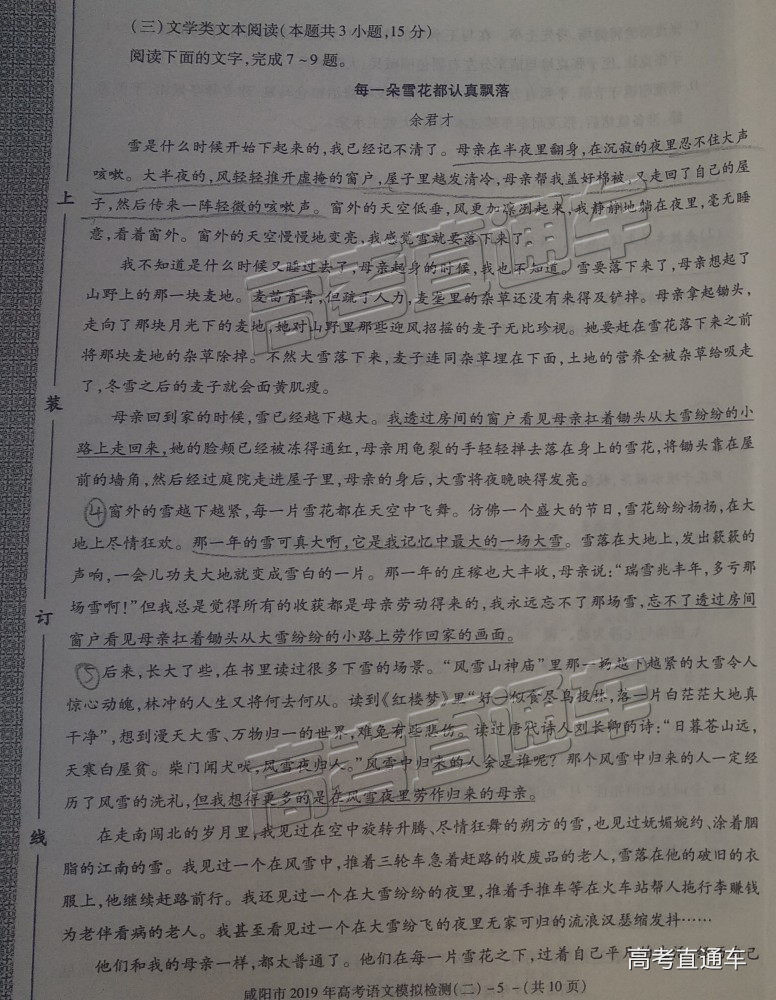 (三)文学类文本阅读(本题共3小题,15分)
阅读下面的文字,完成7~9题。
每一朵雪花都认真飘落
余君才
雪是什么时候开始下起来的,我已经记不清了。母亲在半夜里翻身,在沉寂的夜里忍不住大声
咳嗽。大半夜的,风轻轻推开虚掩的窗户,屋子里越发清冷,母亲帮我盖好棉被,又走回了自己的屋
子,然后传来一阵轻微的咳嗽声。窗外的天空低垂,风更加凛冽起来,我静静地躺在夜里,毫无睡
意,看着窗外。窗外的天空慢慢地变亮,我感觉雪就要落下来了。
我不知道是什么时候又睡过去了,母亲起身的时候,我也不知道。雪要落下来了,母亲想起了
山野上的那一块麦地。麦苗青青,但疏了人力,麦垄里的杂草还没有来得及铲掉。母亲拿起锄头,
走向了那块月光下的麦地,她对山野里那些迎风招摇的麦子无比珍视。她要赶在雪花落下来之前
将那块麦地的杂草除掉。不然大雪落下来,麦子连同杂草埋在下面,土地的营养全被杂草给吸走
了,冬雪之后的麦子就会面黄肌瘦。
母亲回到家的时候,雪已经越下越大。我透过房间的窗户看见母亲扛着锄头从大雪纷纷的小
路上走回来,她的脸颊已经被冻得通红,母亲用龟裂的手轻轻掸去落在身上的雪花,将锄头靠在屋
前的墙角,然后经过庭院走进屋子里,母亲的身后,大雪将夜晚映得发亮。
④窗外的雪越下越紧,每一片雪花都在天空中飞舞。仿佛一个盛大的节日,雪花纷纷扬扬,在大
地上尽情狂欢。那一年的雪可真大啊,它是我记忆中最大的一场大雪。雪落在大地上,发出簌簌的
声响,一会儿功夫大地就变成雪白的一片。那一年的庄稼也大丰收,母亲说:“瑞雪兆丰年,多亏那
场雪啊!”但我总是觉得所有的收获都是母亲劳动得来的,我永远忘不了那场雪,忘不了透过房间
窗户看见母亲扛着锄头从大雪纷纷的小路上劳作回家的画面。
⑤后来,长大了些,在书里读过很多下雪的场景。“风雪山神庙”里那一场越下越紧的大雪令人
惊心动魄,林冲的人生又将何去何从。读到《红楼梦》里“好一似食尽鸟投林,落一片白茫茫大地真
干净”,想到漫天大雪、万物归一的世界,难免有些悲伤。读过唐代诗人刘长卿的诗:“日暮苍山远,
天寒白屋贫。柴门闻犬吠,风雪夜归人。”风雪中归来的人会是谁呢?那个风雪中归来的人一定经
历了风雪的洗礼,但我想得更多的是在风雪夜里劳作归来的母亲。
在走南闯北的岁月里,我见过在空中旋转升腾、尽情狂舞的朔方的雪,也见过妩媚婉约、涂着胭
脂的江南的雪。我见过一个在风雪中,推着三轮车急着赶路的收废品的老人,雪落在他的破旧的衣
服上,他继续赶路前行。我还见过一个在大雪纷纷的夜里,推着手推车等在火车站帮人拖行李赚钱
为老伴看病的老人。我甚至看见过一个在大雪纷飞的夜里无家可归的流浪汉瑟缩发抖……
他们和我的母亲一样,都太普通了。他们在每一片雪花之下,过着自己平凡的
咸阳市2019年高考语文模拟检测(二)-5-(共10页)
上
装
订
线
高考直通车
高考直通车
高考直通车